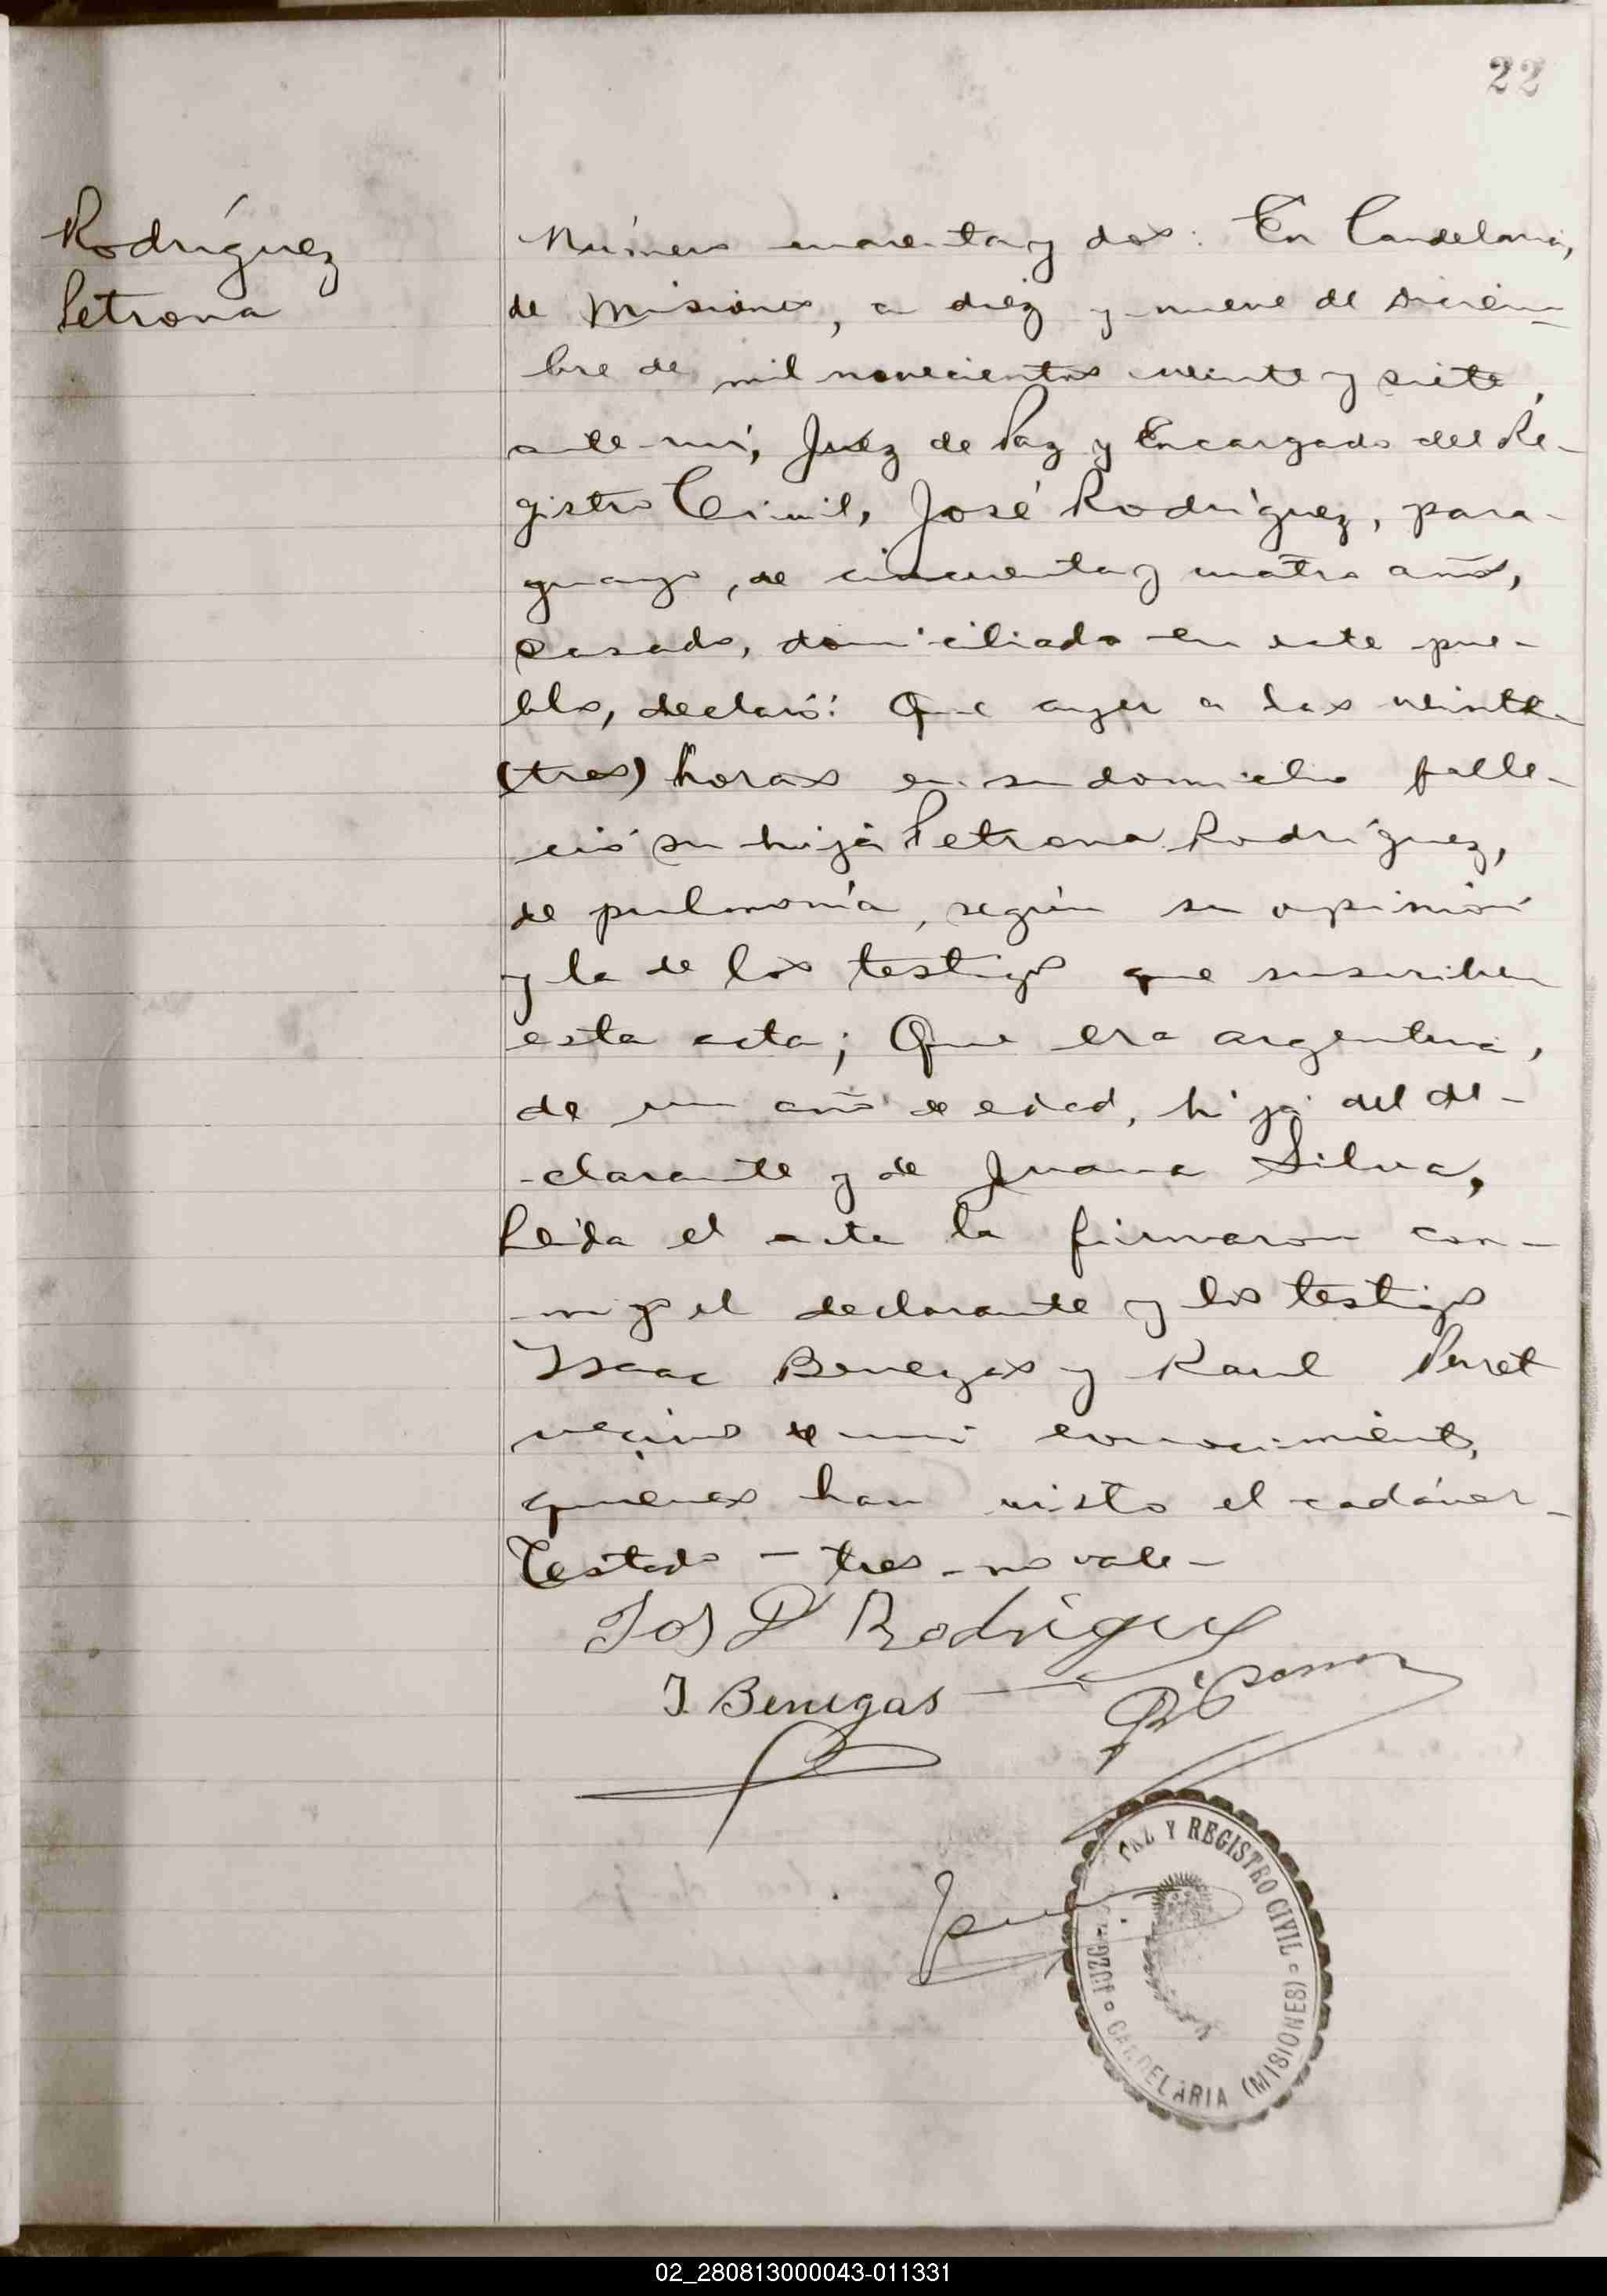 22
Rodríguez
Petrona
Número cuarenta y dos: En Candelaria,
de Misiones, a diez y nueve de Diciem-
bre de mil novecientos veinte y siete,
ante mí, Juez de Paz y Encargado del Re-
gistro Civil, José Rodríguez, para-
guayo, de cincuenta y cuatro años,
casado, domiciliado en este pue-
blo, declaró: Que ayer a las veinte
(tres) horas en su domicilio falle-
ció su hija Petrona Rodríguez,
de pulmonía, según su opinión
y la de los testigos que suscriben
esta acta; Que era argentina,
de un año de edad, hija del de-
-clarante y de Juana Silva,
Leída el acta la firmaron con-
-migo el declarante y los testigos
Isaac Benegas y Raul Perret
vecinos de mi conocimiento,
quienes han visto el cadáver-
Testado - tres - no vale -
Rodriguez
I. Benegas
JUZG PAZ Y REGISTRO CIVIL
CANDELARIA (MISIONES)
02_280813000043-011331